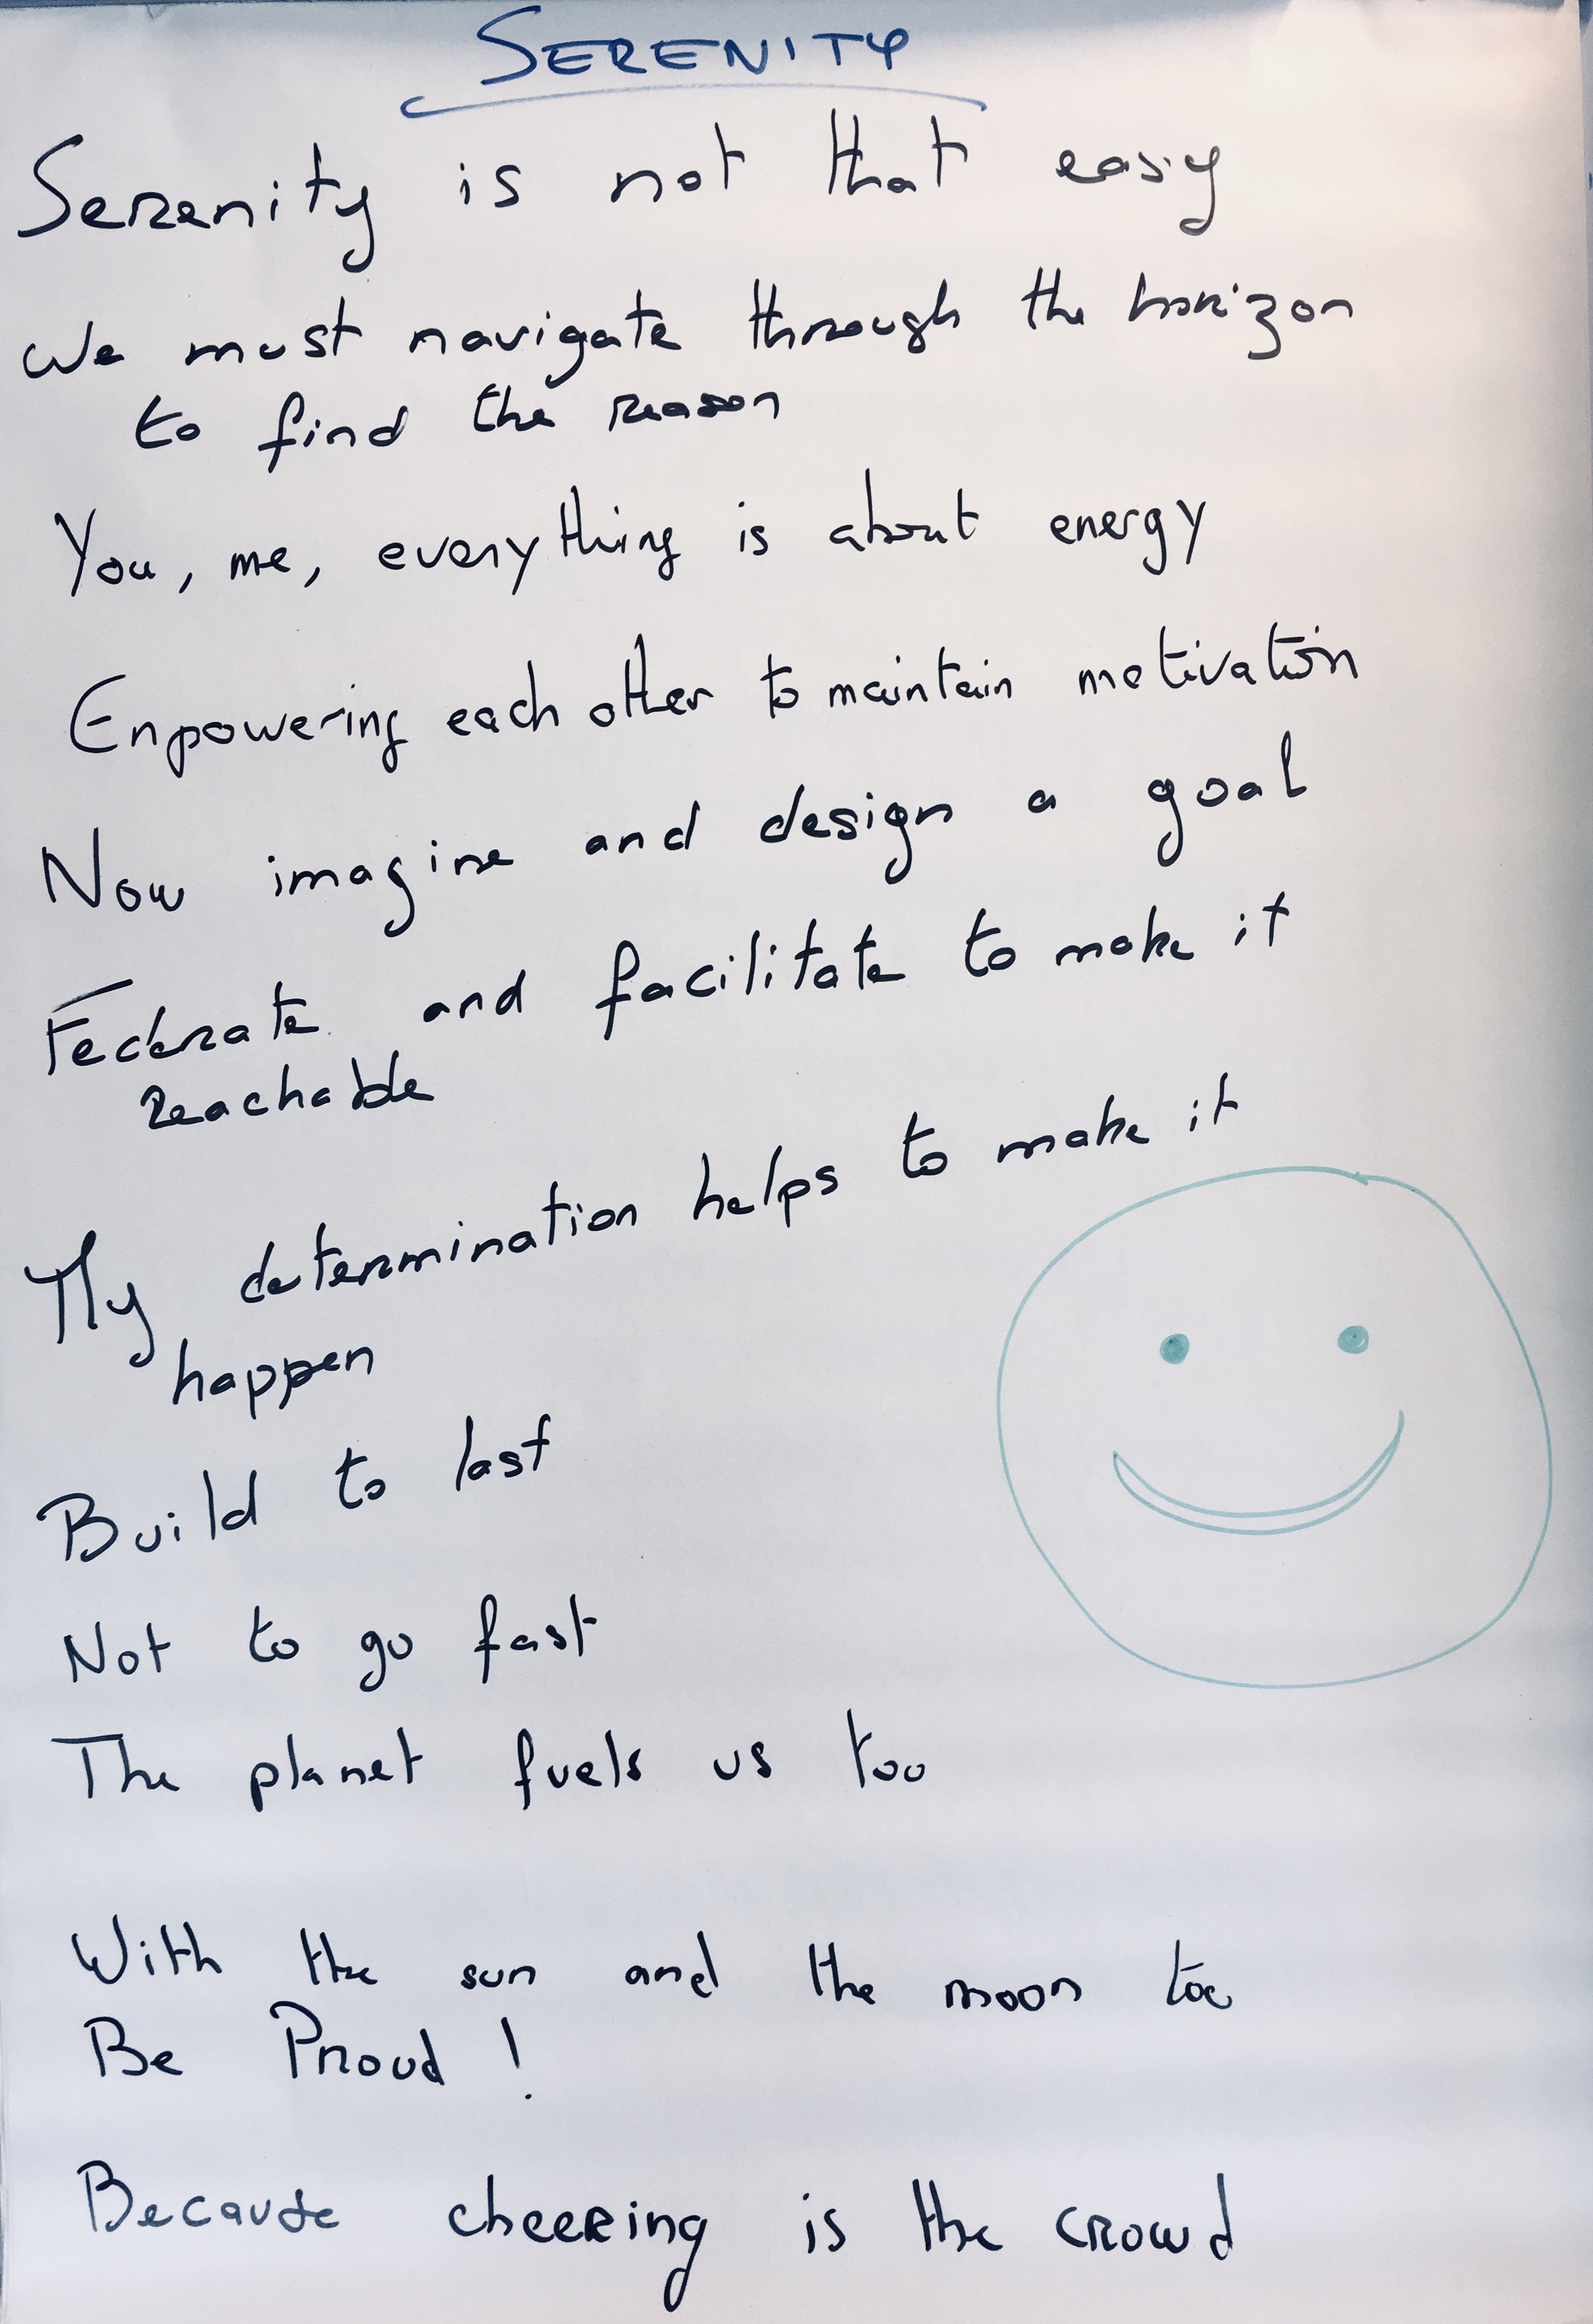 SERENITY
Serenity is not that easy
We must navigate through the horizon
to find the reason
You, me, everything is about energy
Enpowering each other to maintain motivation
Now imagine and design a goal
Federate and facilitate to make it
reachable
My determination helps to make it
happen
Build to last
Not to go fast
The planet fuels us too
With the sun and the moon too
Be Proud !
Because cheering is the crowd